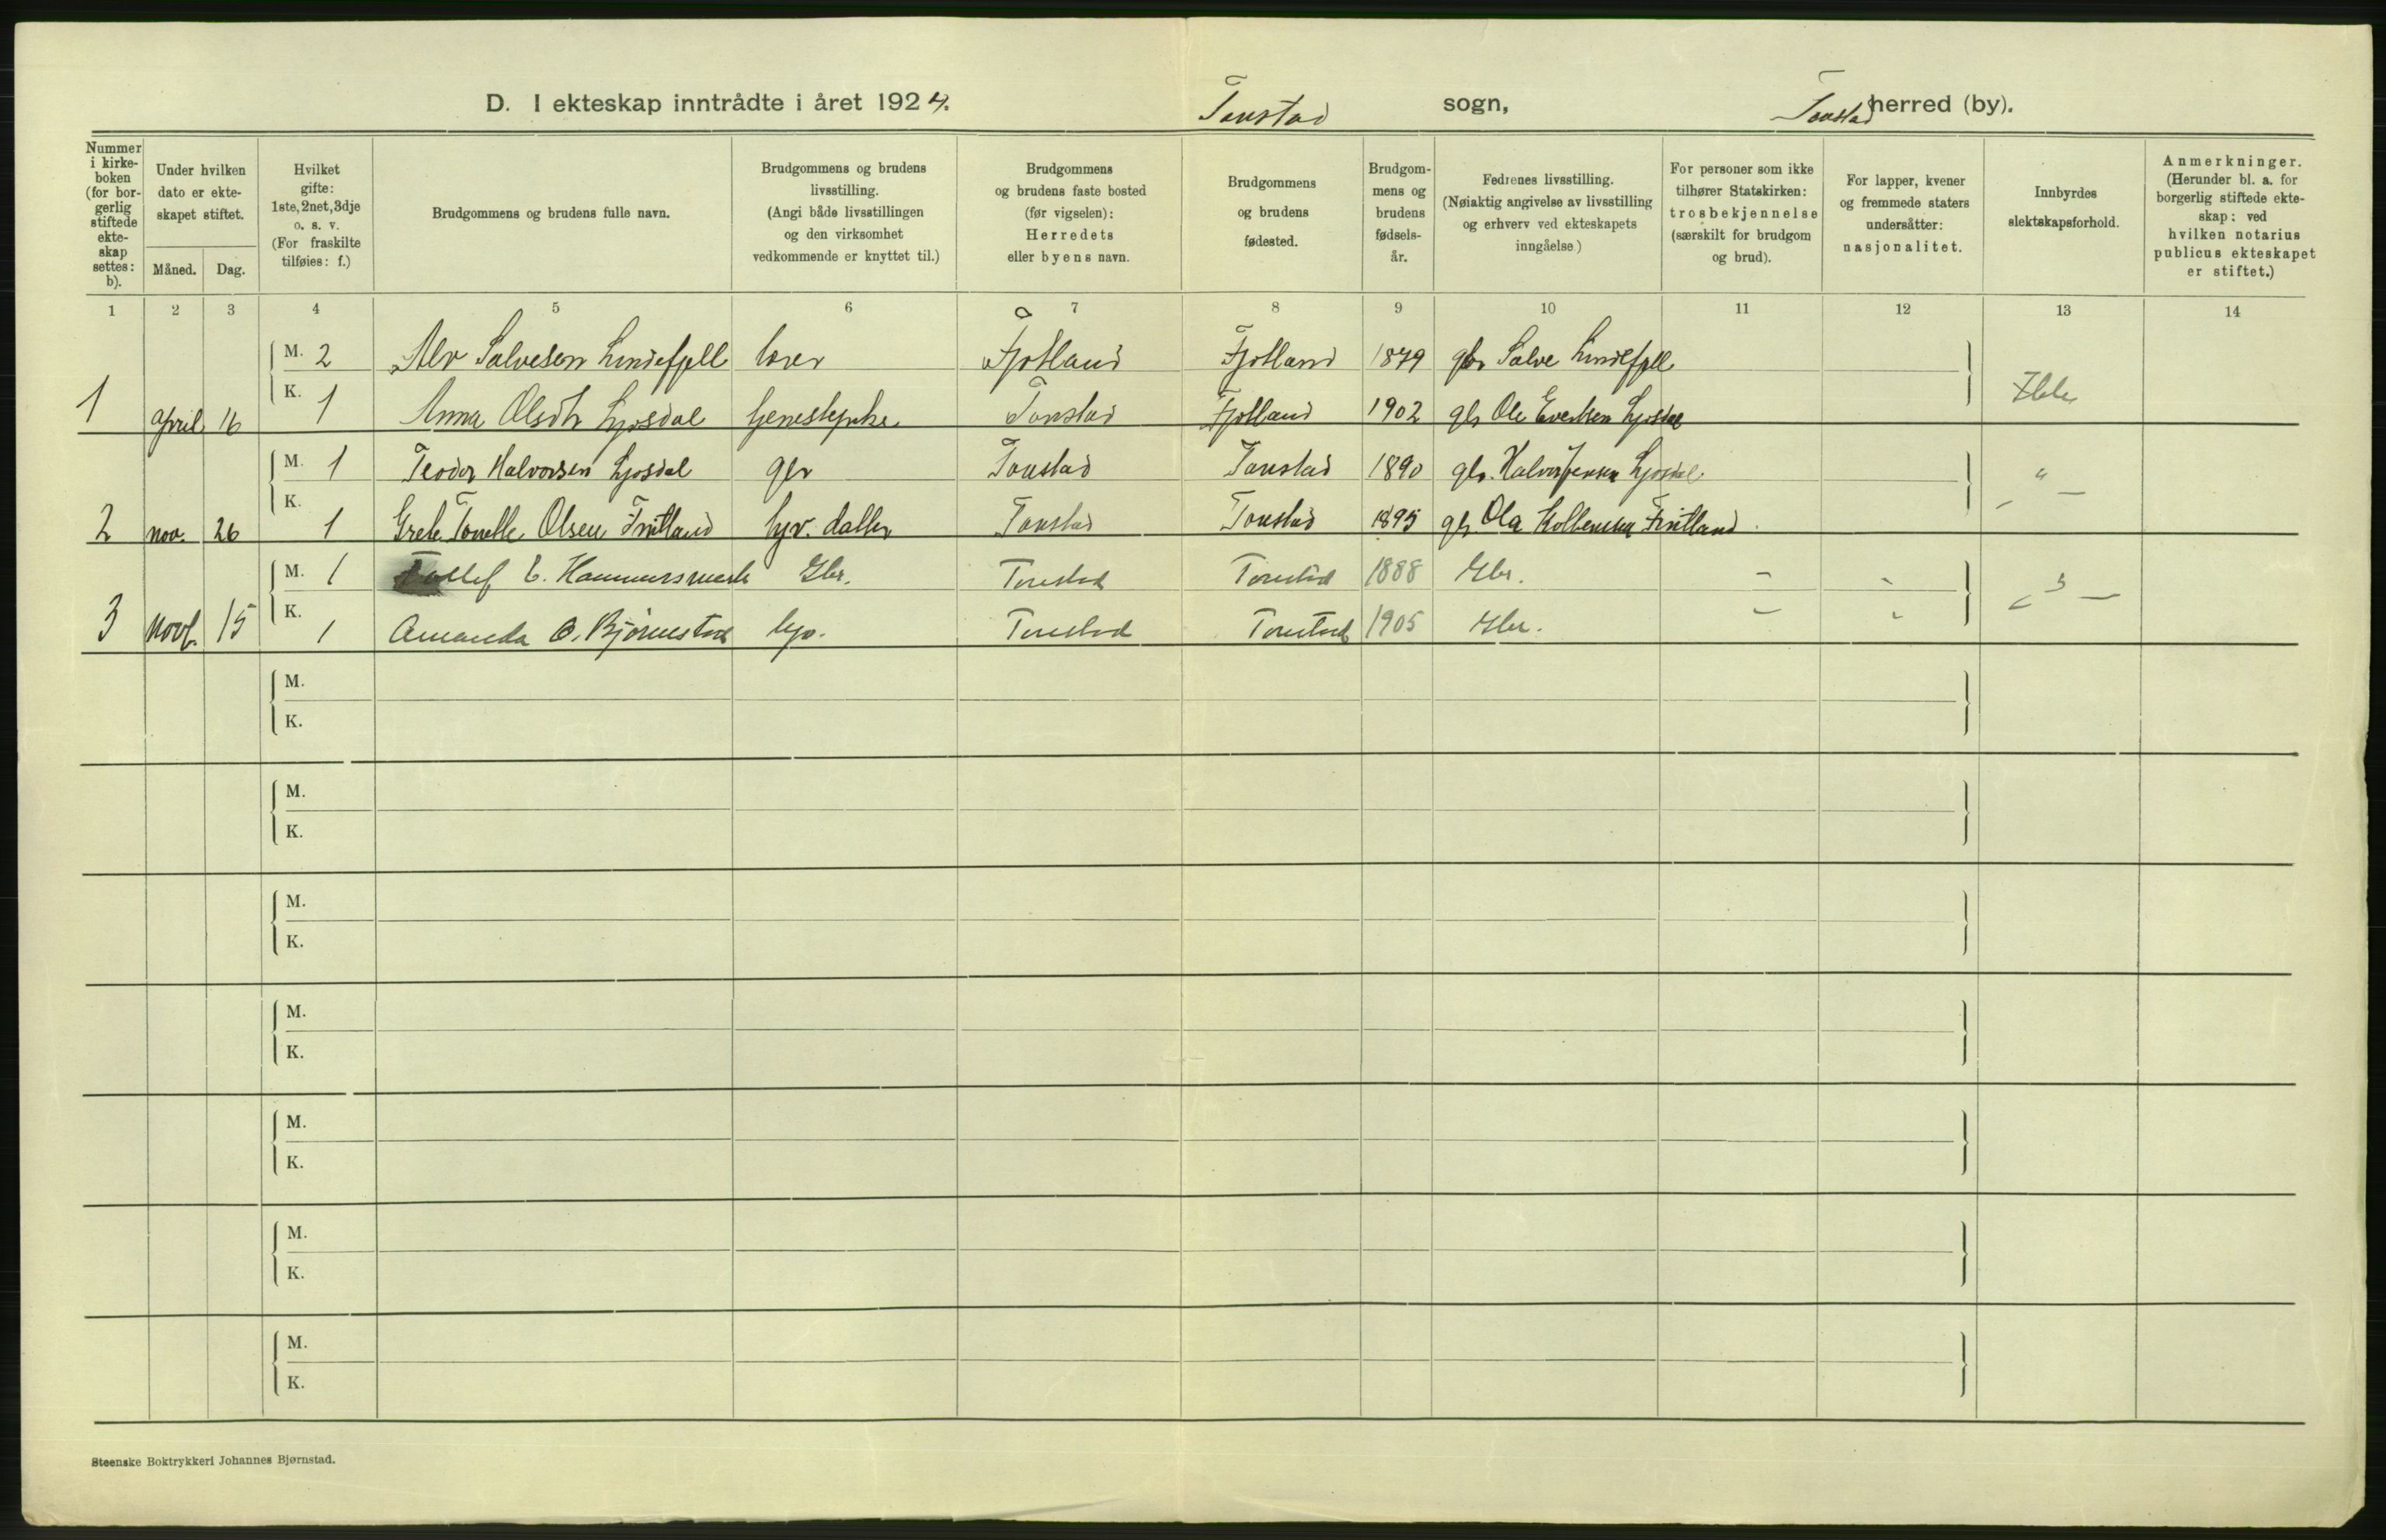 D. I ekteskap inntrådte i året 1924. Tonstad sogn, Tonstad herred (by).
Nummer i kirke-boken (for bor-gerlig stiftede ekte-skap settes: b).
Under hvilken dato er ekte-skapet stiftet.
Måned. Dag.
Hvilket gifte: 1ste, 2net, 3dje o. s. v. (For fraskilte tilføies: f.)
Brudgommens og brudens fulle navn.
Brudgommens og brudens livsstilling. (Angi både livsstillingen og den virksomhet vedkommende er knyttet til.)
Brudgommens og brudens faste bosted (før vigselen): Herredets eller byens navn.
Brudgommens og brudens fødested.
Brudgom-mens og brudens fødsels-år.
Fedrenes livsstilling. (Nøiaktig angivelse av livsstilling og erhverv ved ekteskapets inngåelse)
For personer som ikke tilhører Statskirken: trosbekjennelse (særskilt for brudgom og brud).
For lapper, kvener og fremmede staters undersåtter: nasjonalitet.
Innbyrdes slektskapsforhold.
Anmerkninger. (Herunder bl. a. for borgerlig stiftede ekte-skap: ved hvilken notarius publicus ekteskapet er stiftet.)
1 2 3 4 5 6 7 8 9 10 11 12 13 14
M. 2 Alv Salvesen Lindefjell lærer Fjotland Fjotland 1879 gbr Salve Lindefjell
1 april 16 K. 1 Anna Olsdtr Ljosdal Tonstad Fjotland 1902 gbr Ole Ljosdal
M. 1 Teodor Halvorsen Ljosdal gbr Tonstad Tonstad 1890 gbr. Halvor Jensen Ljosdal - " -
2 nov. 26 K. 1 Grete Tonette Olsen Fintland hjv. datter Tonstad Tonstad 1895 gbr Ola Kolbensen Fintland.
M. 1 Tollef Gbr. Tonstad Tonstad 1888 Gbr. - - - " -
3 Novb. 15 K. 1 Amanda O. Bjørnestad hjv. Tonstad Tonstad 1905 Gbr. - -
M.
K.
M.
K.
M.
K.
M.
K.
M.
K.
M.
K.
M.
K.
Steenske Boktrykkeri Johannes Bjørnstad.